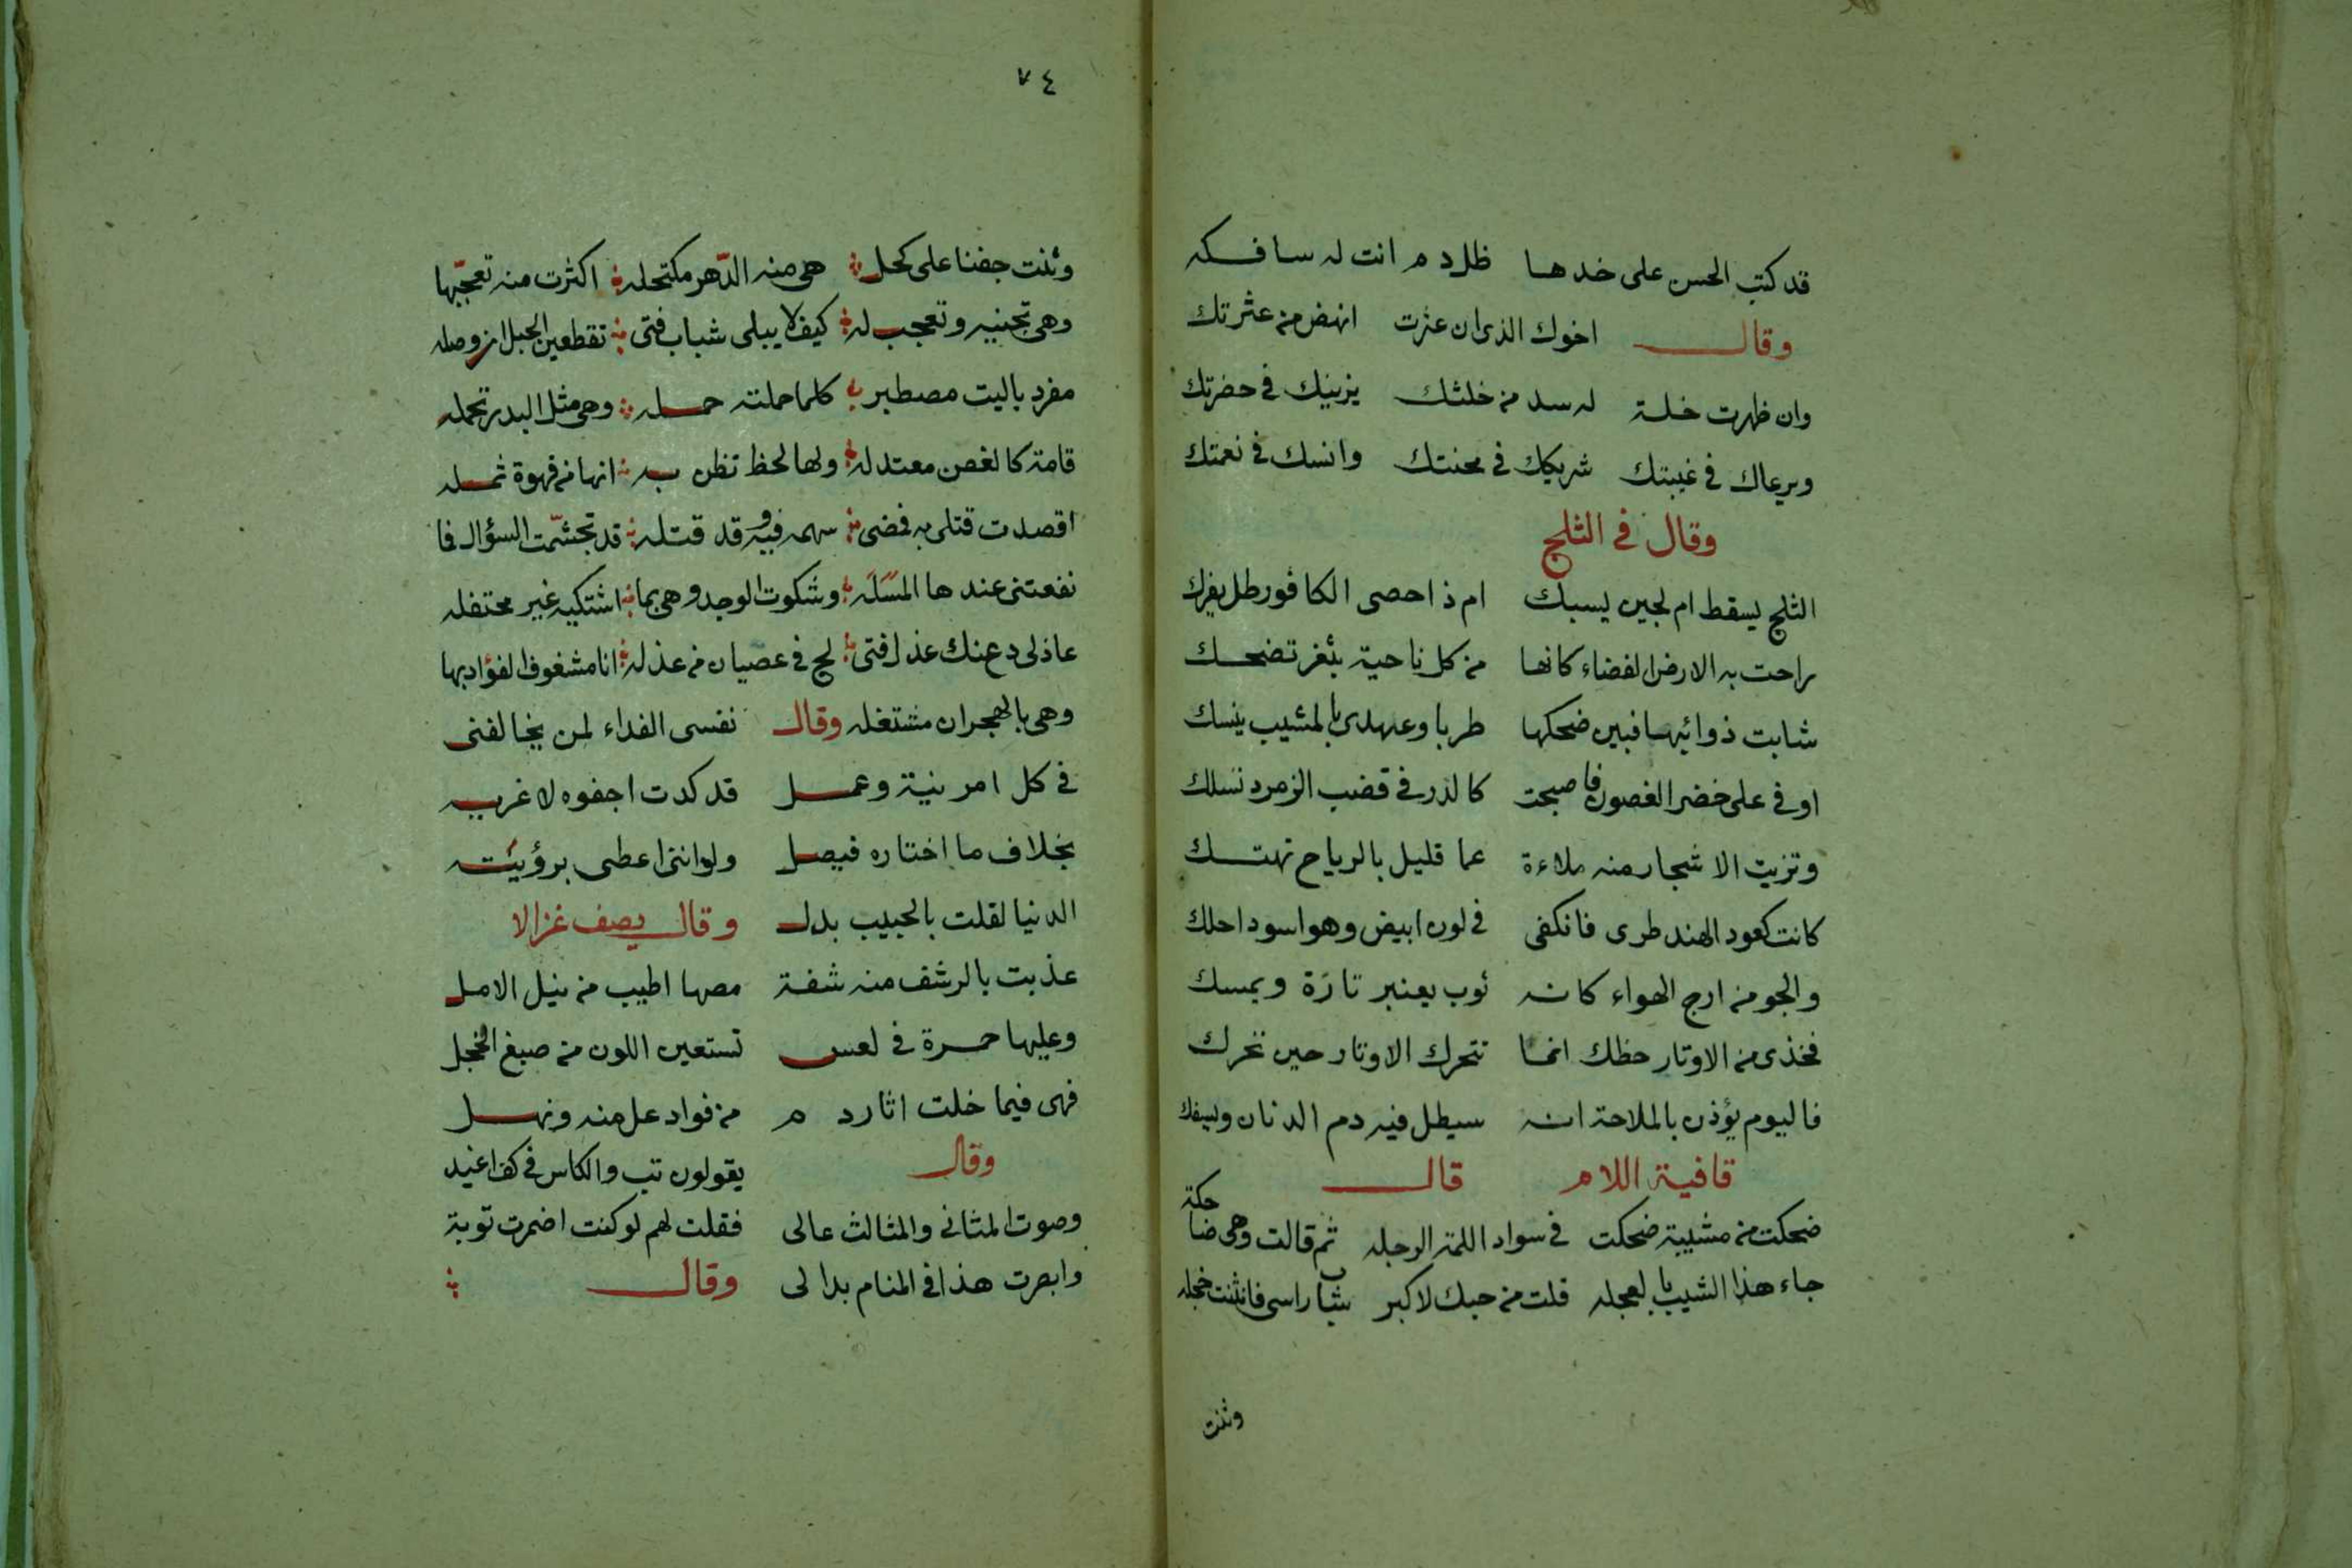 قد كتب الحسن على خدها ظل دم انت له سافكه
وقال اخوك الذي ان عثرت انهض من عثرتك
وان ظهرت خلة له سد من خلتك يزينك في حضرتك
ويرعاك في غيبتك شريكك في محنتك وانسك في نعمتك
وقال في الثلج
الثلج يسقط ام لجين يسبك ام ذا حصى الكافور ظل يفرك
راحت به الارض الفضاء كانها من كل ناحية بثغر تضحك
شابت ذوائبها فبين ضحكها طربا وعهدي بالمشيب ينسك
اوفى على خضر الغصون فاصبحت كالدر في قضب الزمرد تسلك
وتزيت الاشجار منه ملاءة عما قليل بالرياح تهتك
كانت كعود الهند طرى فانكفى في لون ابيض وهو اسود احلك
والجو من ارج الهواء كانه ثوب يعنبر تارة ويمسك
فخذي من الاوتار حظك انما تتحرك الاوتار حين تحرك
فاليوم يؤذن بالملاحة انه سيطل فيه دم الدنان ويسفك
قافية اللام قال
ضحكت من مشيبة ضحكت في سواد اللمة الرجله ثم قالت وهي ضاحكة
جاء هذا الشيب بالعجله قلت من حبك لا كبر شاب راسي فانثنت خجله
وثنت
٧٤
وثنت جفنا على كحل هي منه الدّهر مكتحله اكثرت منه تعجّبها
وهي تجنيه وتعجب له كيف لا يبلى شباب فتى تقطعين الحبل ان وصله
مفرد باليت مصطبر كلما حملته حمله وهي مثل البدر تحمله
قامة كالغصن معتدله ولها لحظ تظن به انها من قهوة ثمله
اقصدت قتلى به فمضى سهمه فيه وقد قتله قد تجشّمت السؤال فا
نفعتني عندها المسَله وشكوت الوجد وهي بما اشتكيه غير محتفله
عاذلي دع عنك عذل فتى لج في عصيان من عذله انا مشغوف الفؤاد بها
وهي بالهجران مشتغله وقال نفسي الفداء لمن يخالفني
في كل امر نية وعمل قد كدت اجفوه لا غريه
بخلاف ما اختاره فيصل ولو انني اعطى برؤيته
الدنيا لقلت بالحبيب بدل وقال يصف غزالا
عذبت بالرشف منه شفة مصها اطيب من نيل الامل
وعليها حمرة في لعس تستعين اللون من صبغ الخجل
فهي فيما خلت اثار دم من فواد عل منه ونهل
وقال يقولون تب والكاس في كف اغيد
وصوت المثاني والمثالث عالى فقلت لهم لو كنت اضمرت توبة
وابصرت هذا في المنام بدا لى وقال